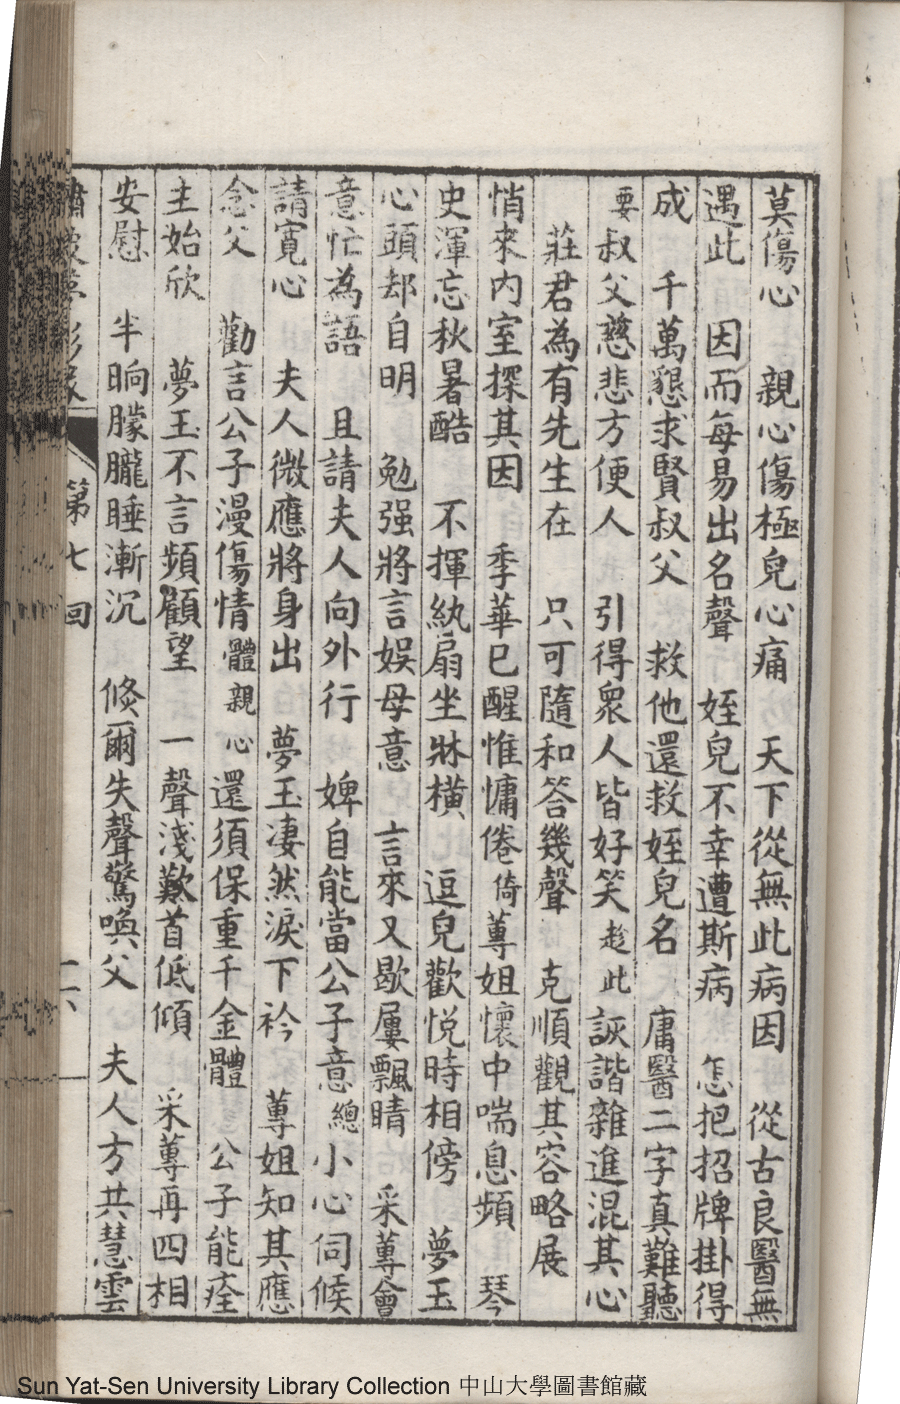 莫傷心　親心傷極皃心痛　天下從無此病因　從古良醫無
遇此　因而每易出名聲　姪兒不幸遭斯病　怎把招牌掛得
成　千萬懇求賢叔父　救他還救姪兒名　庸醫二字真難聽
要叔父慈悲方便人　引得衆人皆好笑　趁此詼諧雜進混其心
莊君為有先生在　只可隨和答幾聲　克順觀其容略展
悄來內室探其因　季華已醒惟慵倦　倚蓴姐懷中喘息頻　琴
史渾忘秋暑酷　不揮紈扇坐牀橫　逗兒歡悅時相傍　夢玉
心頭却自明　勉强將言娛母意　言來又歇屢飄睛　采蓴會
意忙為語　且請夫人向外行　婢自能當公子意　總小心伺候
請寬心　夫人微應將身出　夢玉凄然淚下衿　蓴姐知其應
念父　勸言公子漫傷情　體親心還須保重千金體　公子能痊
主始欣　夢玉不言頻顧望　一聲淺歎首低傾　采蓴再四相
安慰　半晌朦朧睡漸沉　倐爾失聲驚喚父　夫人方共慧雲
夢影
第七回
二六
Sun Yat-Sen University Library Collection 中山大學圖書館藏